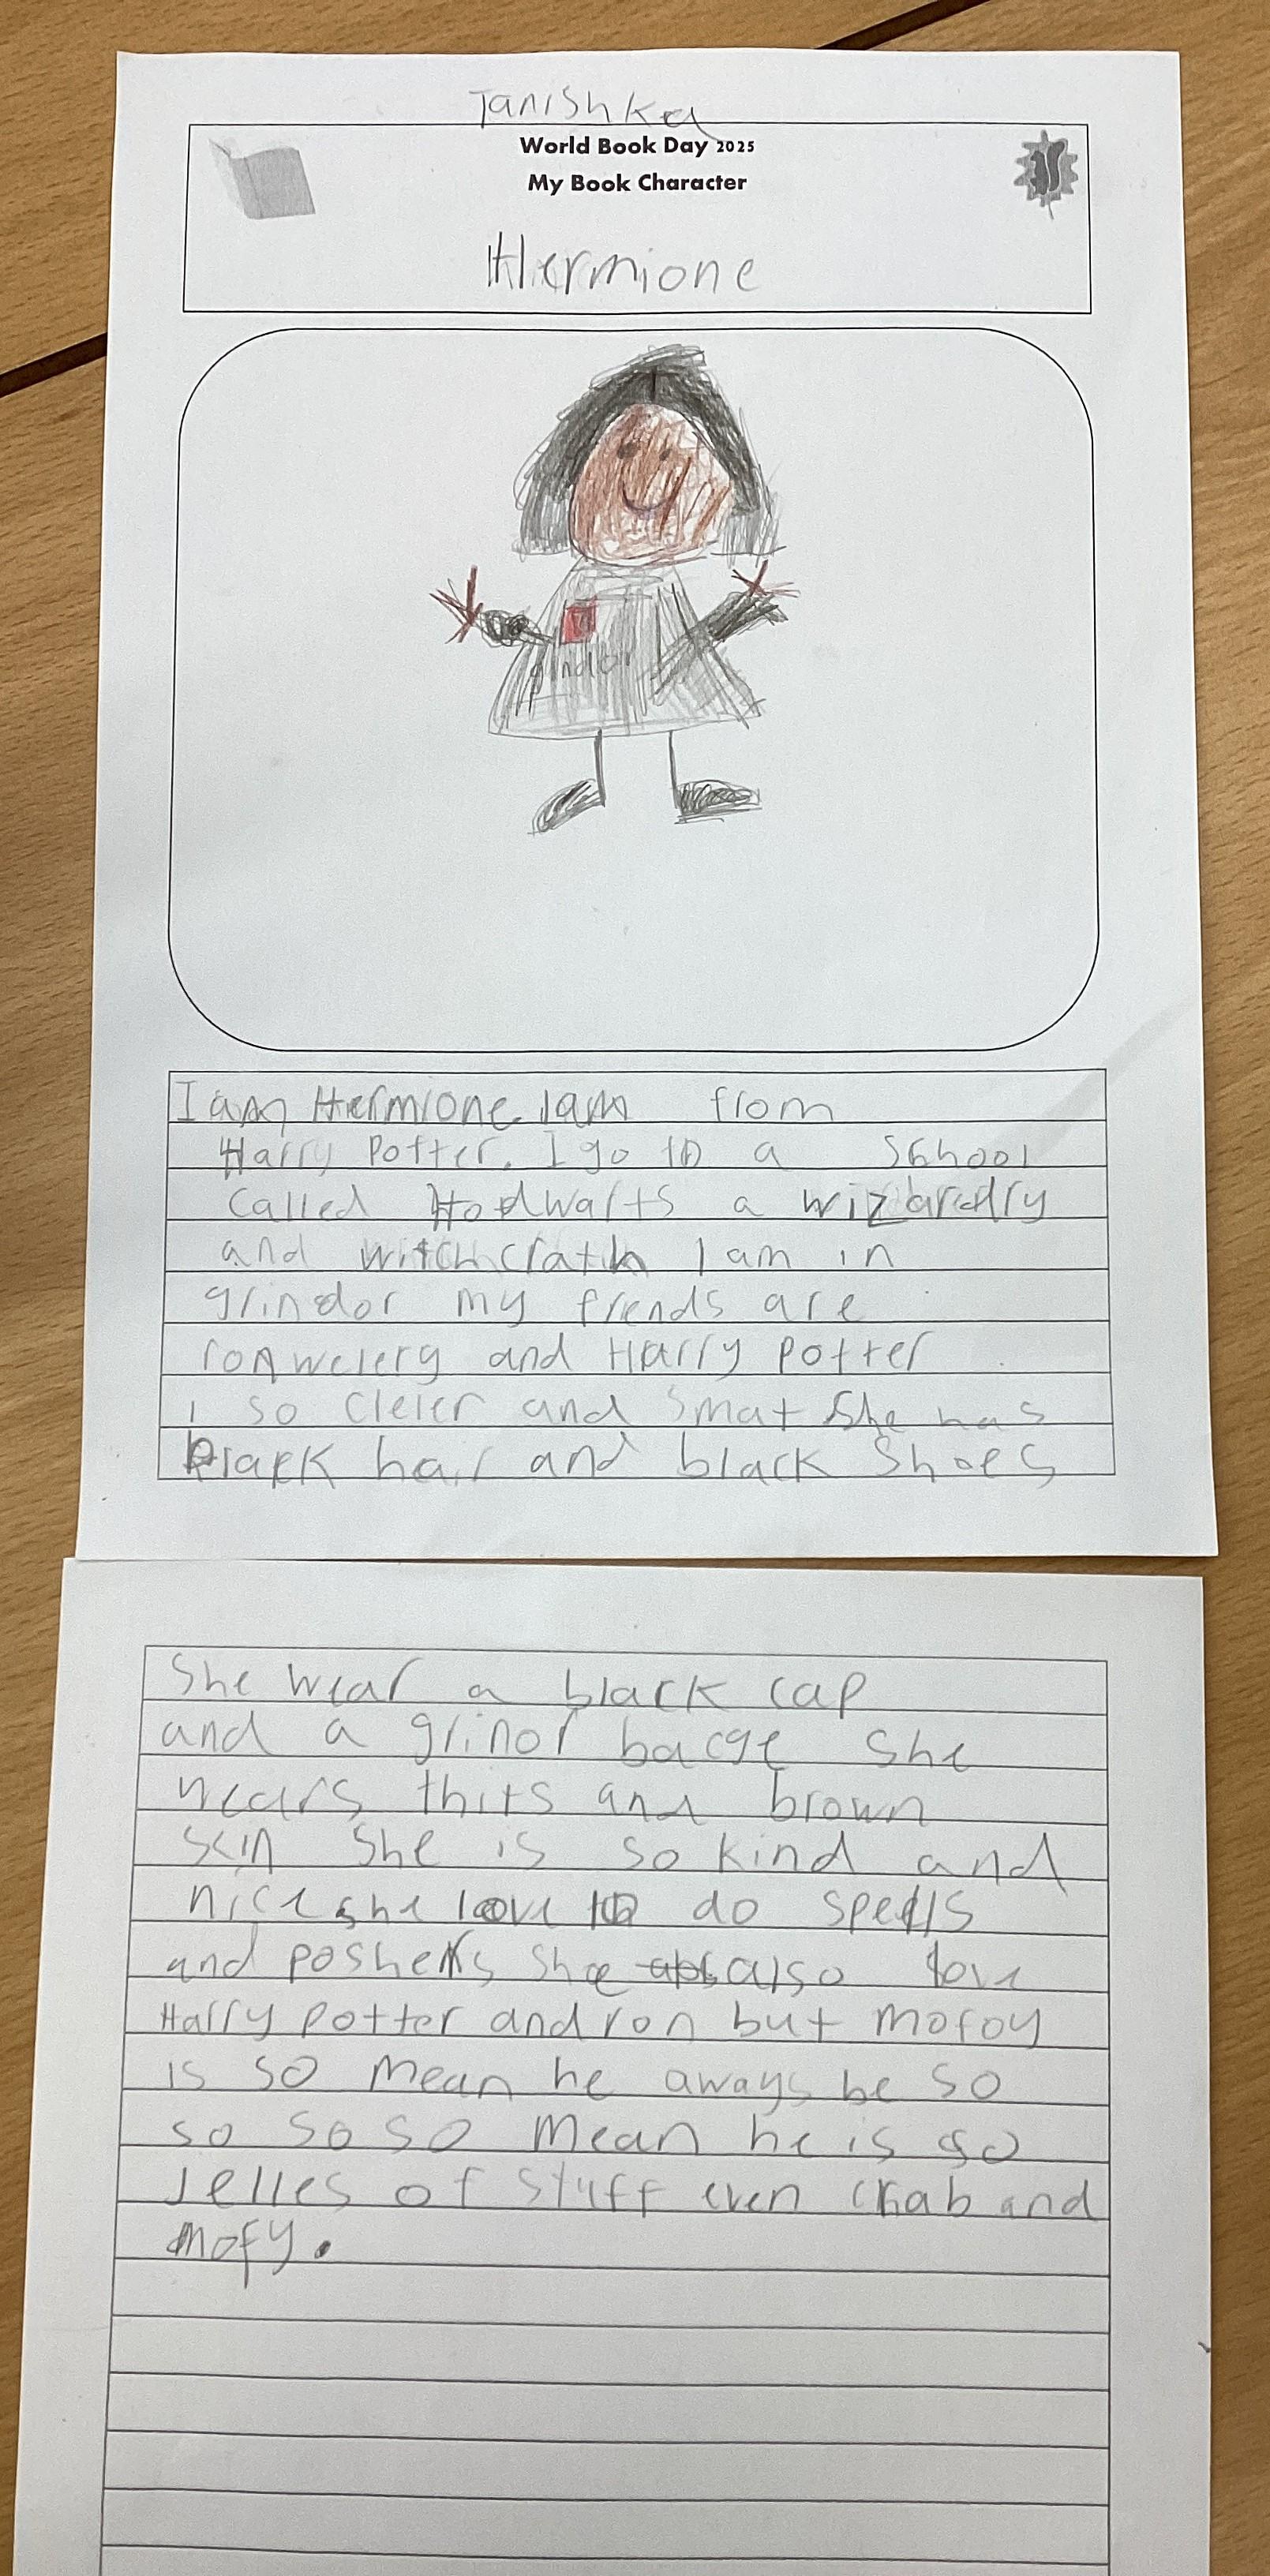 Tanishka
World Book Day 2025
My Book Character
Hermione
grindor
I am Hermione. I am from
Harry Potter. I go to a School
called Hodwarts a wizardry
and witchcrath I am in
grindor my friends are
ronwelery and Harry Potter
i so clever and Smat She has
black hair and black Shoes
She wear a black cap
and a grinor bacge she
wears thits and brown
skin She is so kind and
nice she love to do spells
and posheks She also love
Harry Potter and ron but mofoy
is so mean he aways be so
so so so mean he is so
Jelles of stuff even crab and
mofy.